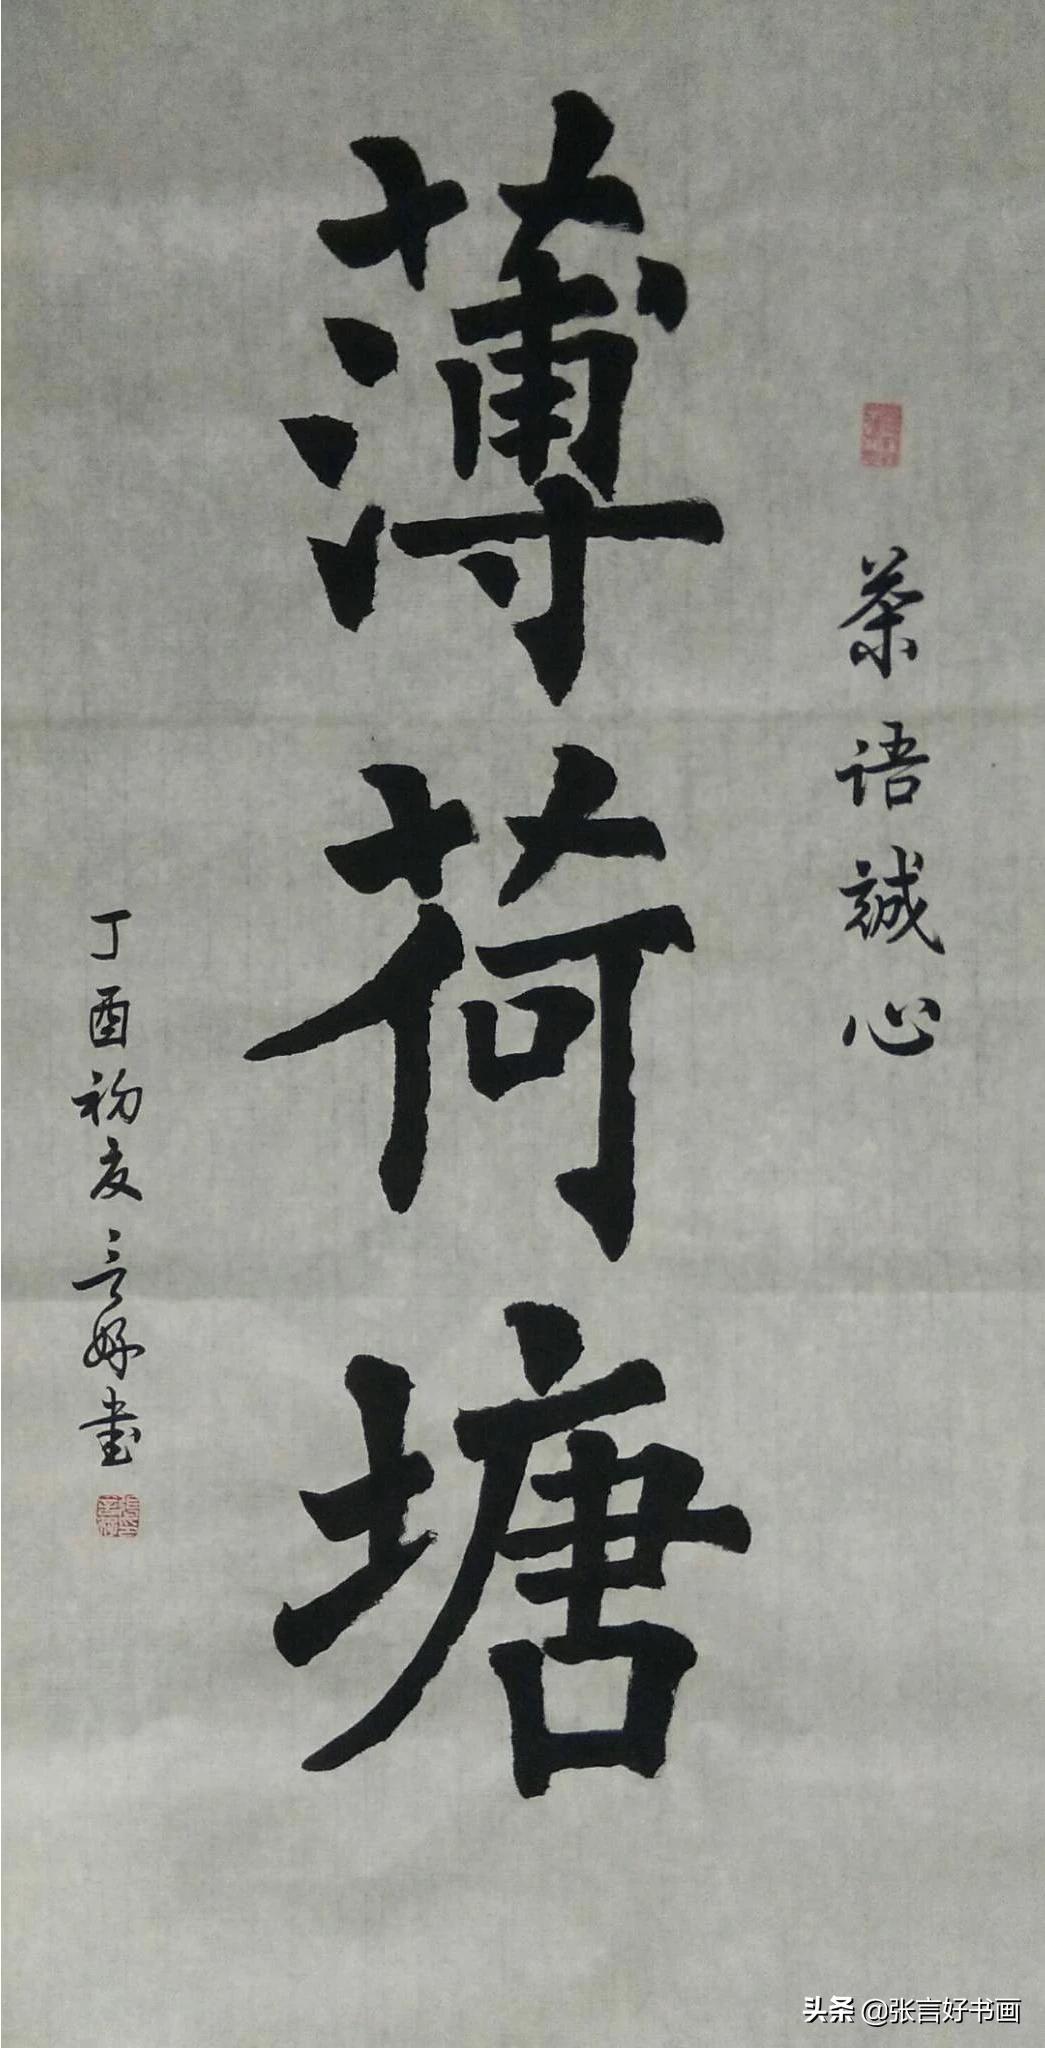 茶语誠心
薄荷塘
丁酉初夏言好书
头条 @张言好书画